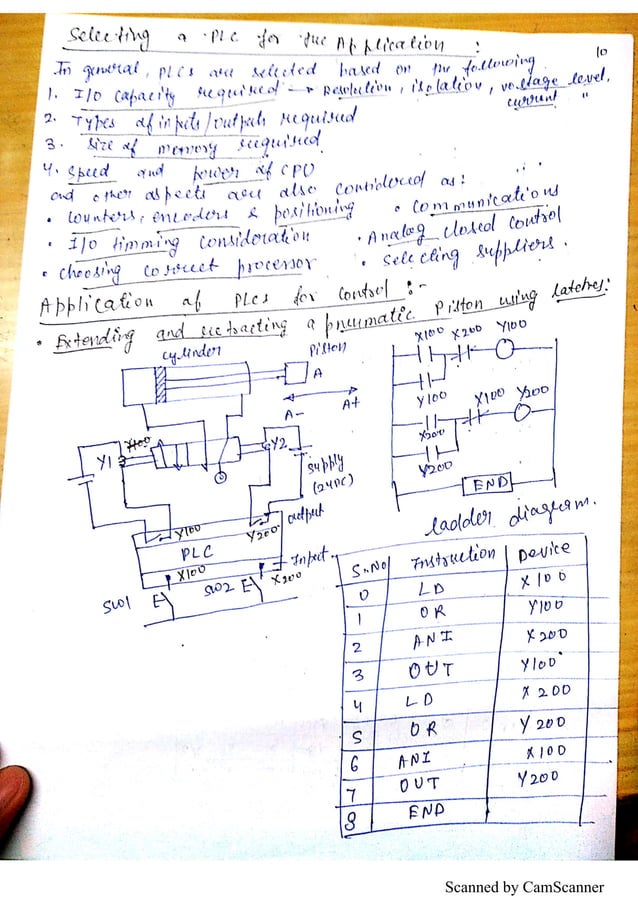 Selecting a PLC for the Application :
10
In general, PLCs are selected based on the following
1. I/O capacity required → Resolution, isolation, voltage level,
current "
2. Types of inputs/outputs required
3. Size of memory required
4. Speed and power of CPU
and other aspects are also considered as :
• Counters, encoders & positioning
• Communications
• I/O timming consideration
• Analog closed control
• Choosing correct processor
• Selecting suppliers.
Application of PLCs for Control :-
• Extending and retracting a pneumatic Piston using latches:
cylinder
Piston
A
A- A+
Y1
Y2
Supply
(24DC)
Y100
Y200
output
PLC
X100
X200
Input
SW1
SW2
X100 X200 Y100
Y100
X200
X100 Y200
Y200
END
ladder diagram.
S.No Instruction Device
0 LD X100
1 OR Y100
2 ANI X200
3 OUT Y100
4 LD X200
5 OR Y200
6 ANI X100
7 OUT Y200
8 END
Scanned by CamScanner